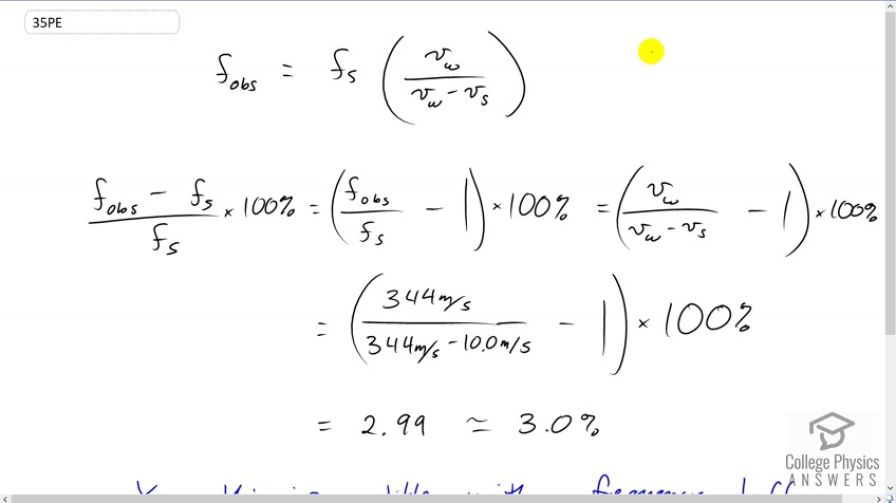 35PE
f_obs = f_s ( v_w / (v_w - v_s) )
(f_obs - f_s) / f_s × 100% = ( f_obs / f_s - 1 ) × 100% = ( v_w / (v_w - v_s) - 1 ) × 100%
= ( 344 m/s / (344 m/s - 10.0 m/s) - 1 ) × 100%
= 2.99 ≃ 3.0%
College Physics
ANSWERS